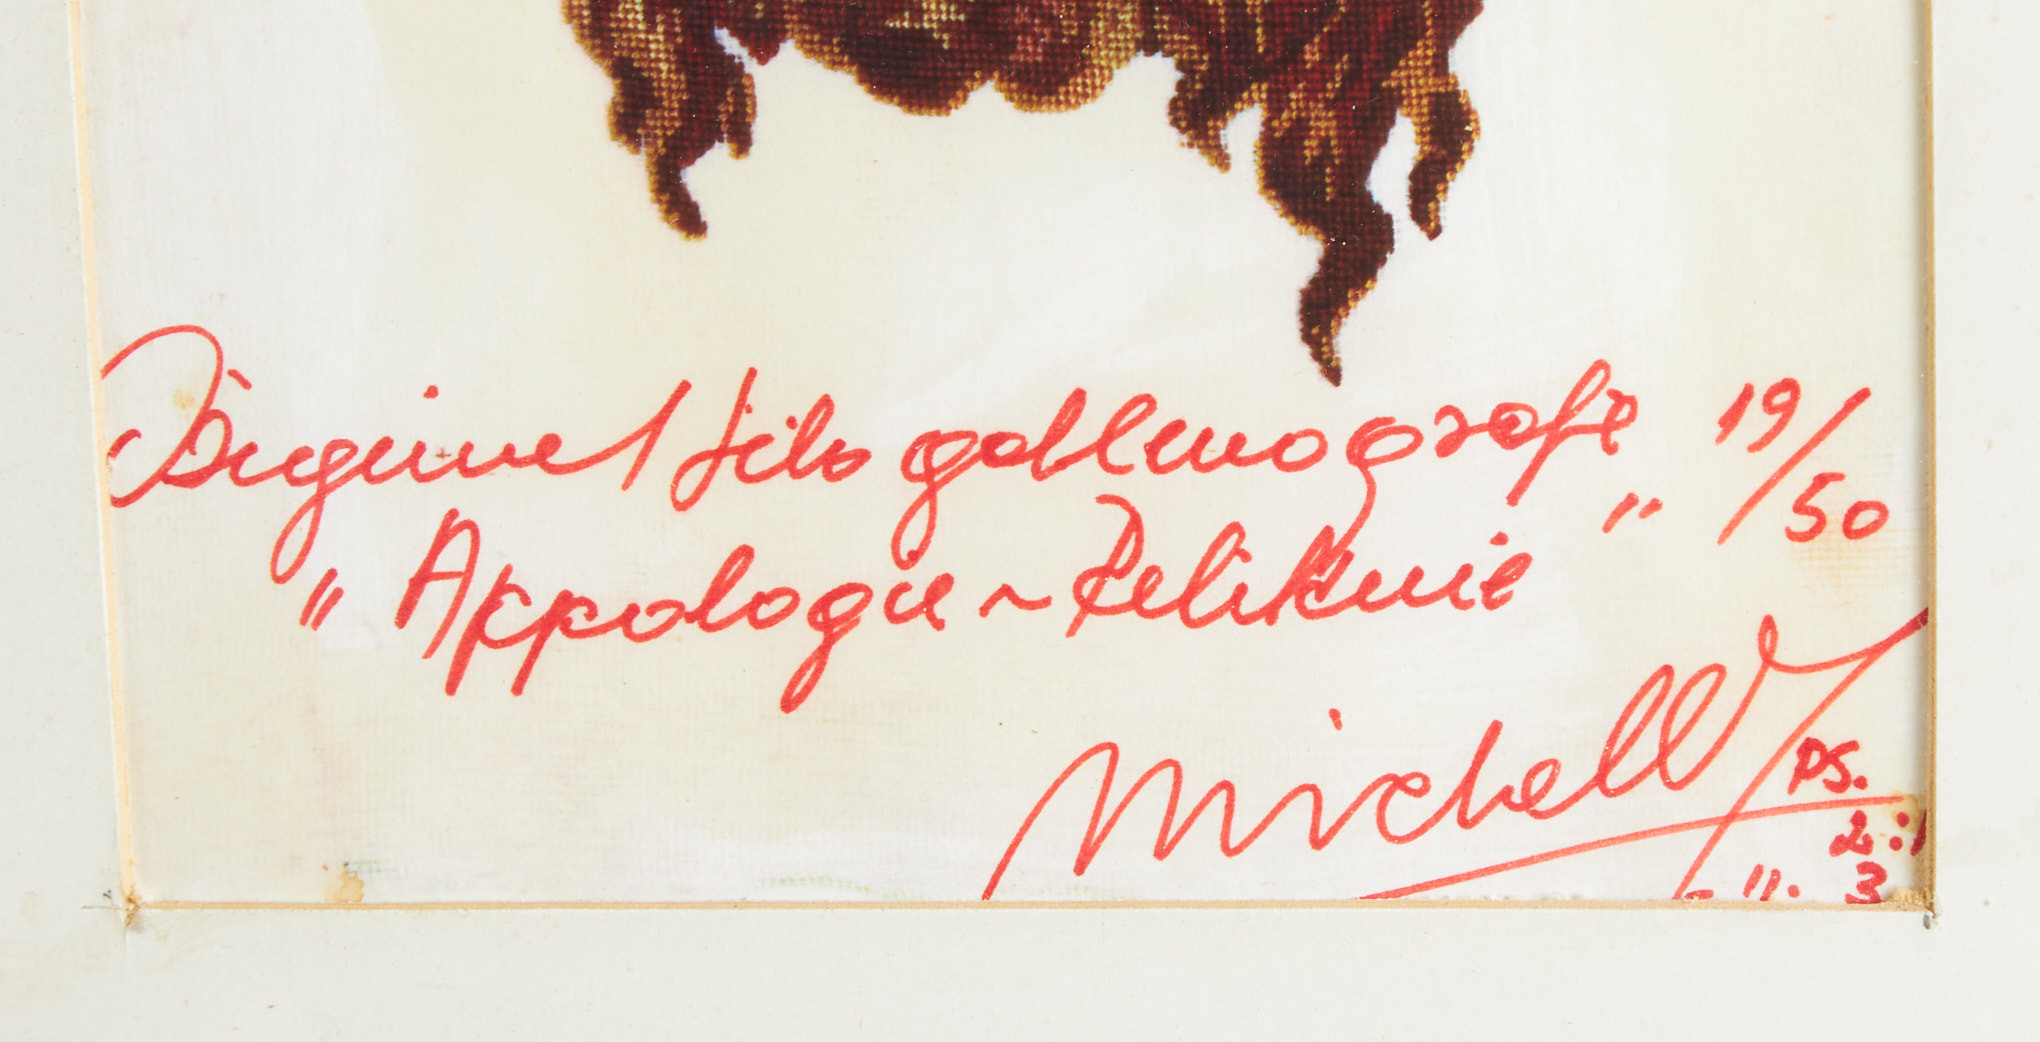 Original silo goblenografie 19/50
„Appologie ~ Relikvie"
Michell
PS.
2:1
- 11. 3